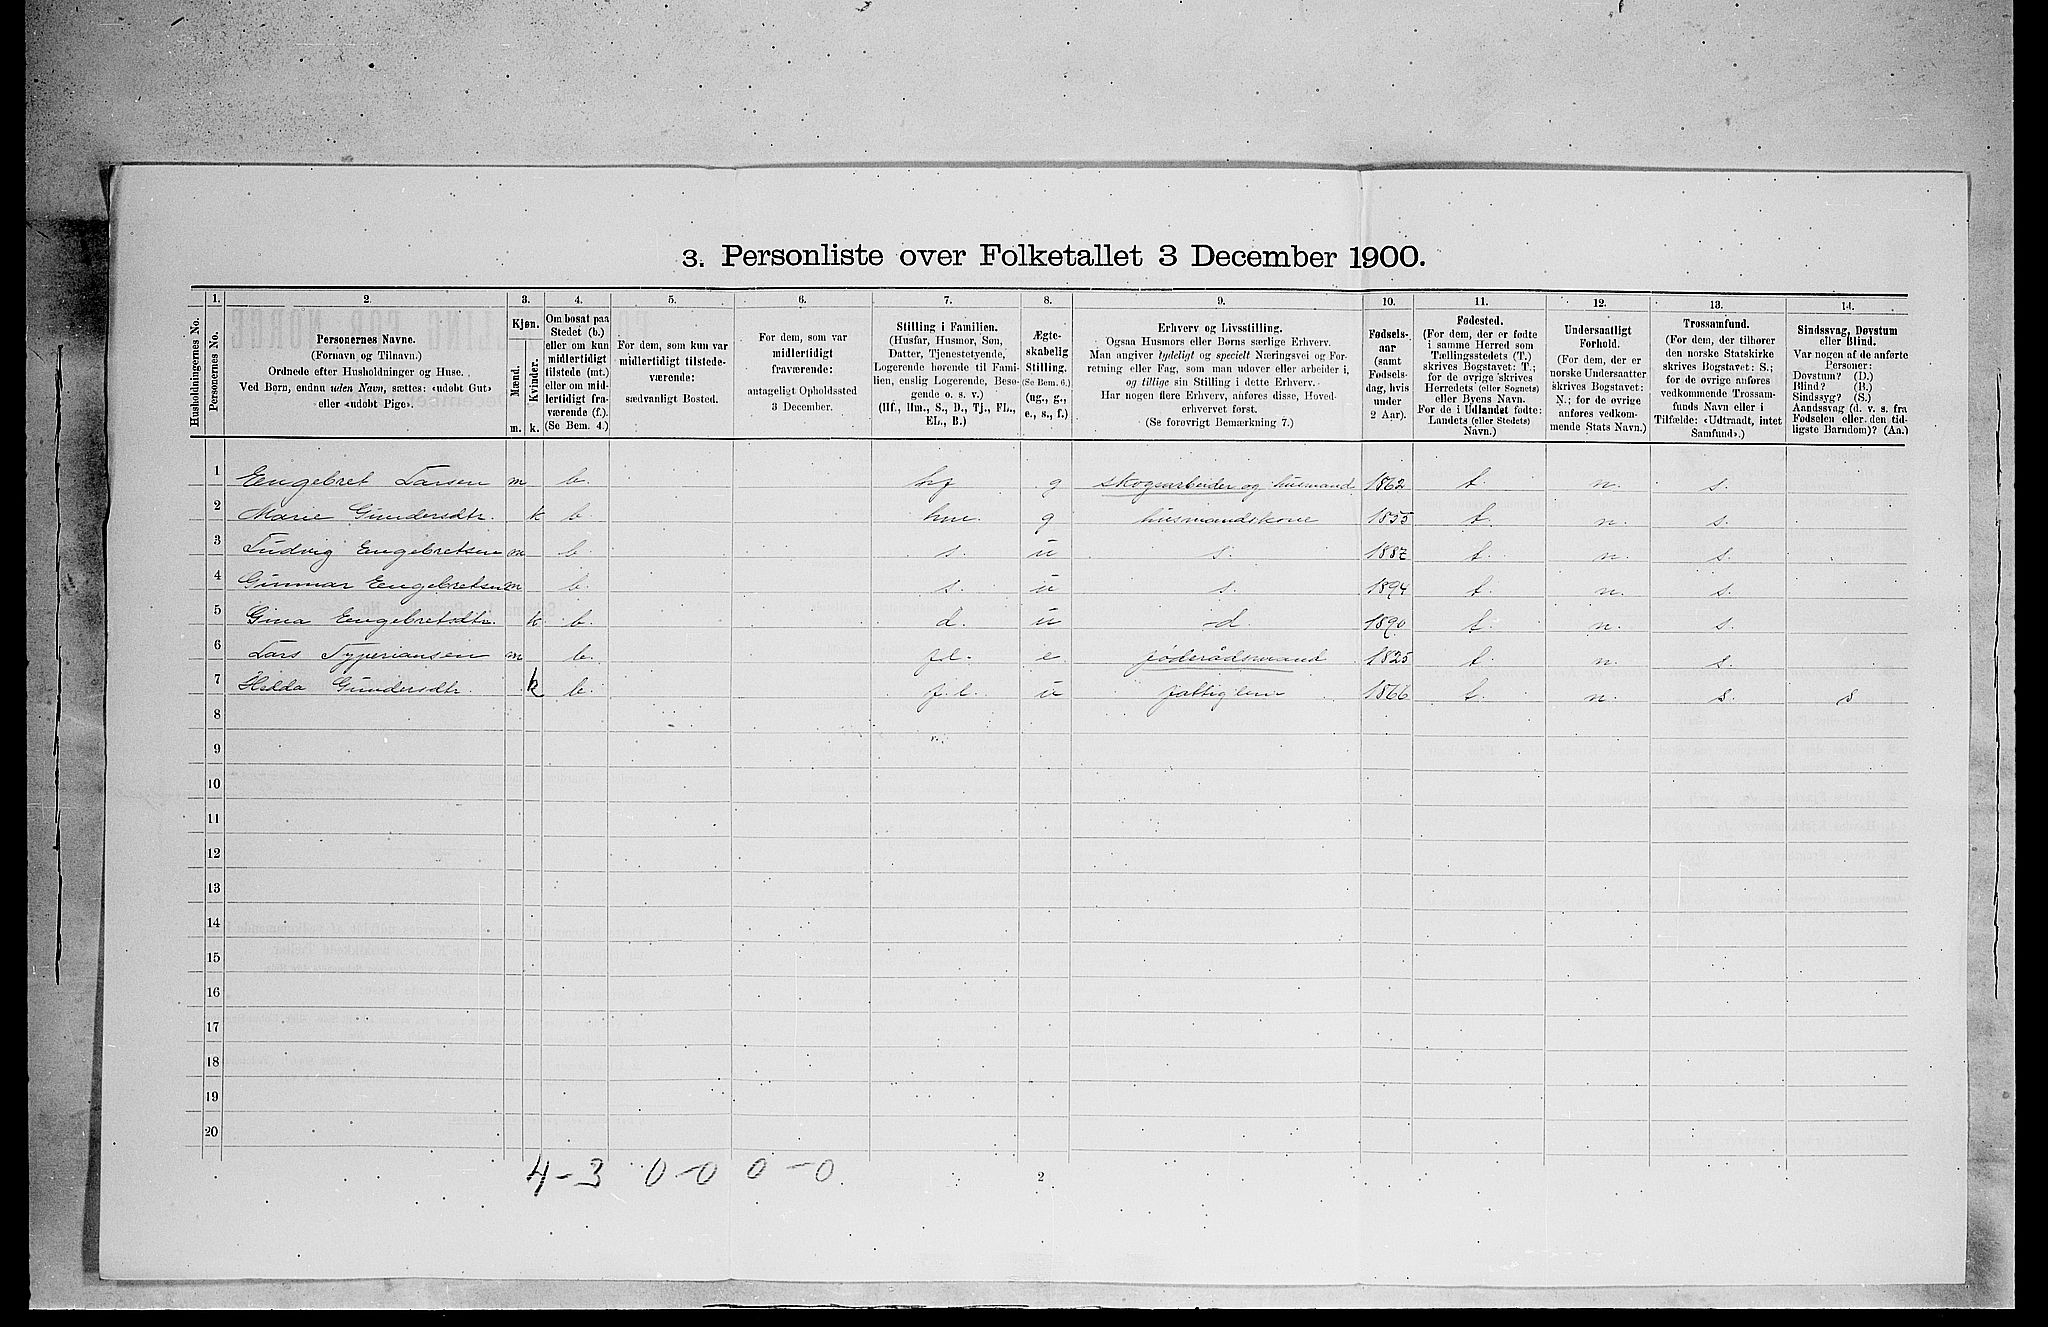 3. Personliste over Folketallet 3 December 1900.
1. 2. 3. 4. 5. 6. 7. 8. 9. 10. 11. 12. 13. 14.
Husholdningernes No.
Personernes No.
Personernes Navne.
(Fornavn og Tilnavn.)
Ordnede efter Husholdninger og Huse.
Ved Børn, endnu uden Navn, sættes: «udøbt Gut»
eller «udøbt Pige».
Kjøn.
Mænd.
Kvinder.
m. k.
Om bosat paa
Stedet (b.)
eller om kun
midlertidigt
tilstede (mt.)
eller om mid-
lertidigt fra-
værende (f.).
(Se Bem. 4.)
For dem, som kun var
midlertidigt tilstede-
værende:
sædvanligt Bosted.
For dem, som var
midlertidigt
fraværende:
antageligt Opholdssted
3 December.
Stilling i Familien.
(Husfar, Husmor, Søn,
Datter, Tjenestetyende,
Logerende hørende til Fami-
lien, enslig Logerende, Besø-
gende o. s. v.)
(Hf., Hm., S., D., Tj., FL.,
EL., B.)
Ægte-
skabelig
Stilling.
(Se Bem. 6.)
(ug., g.,
e., s., f.)
Erhverv og Livsstilling.
Ogsaa Husmors eller Børns særlige Erhverv.
Man angiver tydeligt og specielt Næringsvei og For-
retning eller Fag, som man udøver eller arbeider i,
og tillige sin Stilling i dette Erhverv.
Har nogen flere Erhverv, anføres disse, Hoved-
erhvervet først.
(Se forøvrigt Bemærkning 7.)
Fødsels-
aar
(samt
Fødsels-
dag, hvis
under
2 Aar).
Fødested.
(For dem, der er fødte
i samme Herred som
Tællingsstedets (T.)
skrives Bogstavet: T.;
for de øvrige skrives
Herredets (eller Sognets)
eller Byens Navn.
For de i Udlandet fødte:
Landets (eller Stedets)
Navn.)
Undersaatligt
Forhold.
(For dem, der er
norske Undersaatter
skrives Bogstavet:
N.; for de øvrige
anføres vedkom-
mende Stats Navn.)
Trossamfund.
(For dem, der tilhører
den norske Statskirke
skrives Bogstavet: S.;
for de øvrige anføres
vedkommende Trossam-
funds Navn eller i
Tilfælde: «Udtraadt, intet
Samfund».)
Sindssvag, Døvstum
eller Blind.
Var nogen af de anførte
Personer:
Døvstum? (D.)
Blind? (B.)
Sindssyg? (S.)
Aandssvag (d. v. s. fra
Fødselen eller den tid-
ligste Barndom)? (Aa.)
1 Engebret Larsen m b. hf g skogsarbeider og husmand 1862 t. n. s.
2 Marie Gundersdtr. k b. hm. g husmandskone 1855 t. n. s.
3 Ludvig Engebretsen m b. s. u s. 1887 t. n. s.
4 Gunnar Engebretsen m b. s. u s. 1894 t. n. s.
5 Gina Engebretsdtr. k b. d. u d. 1890 t. n. s.
6 Lars Typeriansen m b. fl. e. føderådsmand 1825 t. n. s.
7 Hilda Gundersdtr. k b. f.l. u fattiglem 1866 t. n. s. s
8
9
10
11
12
13
14
15
16
17
18
19
20
4-3 0-0 0-0
2